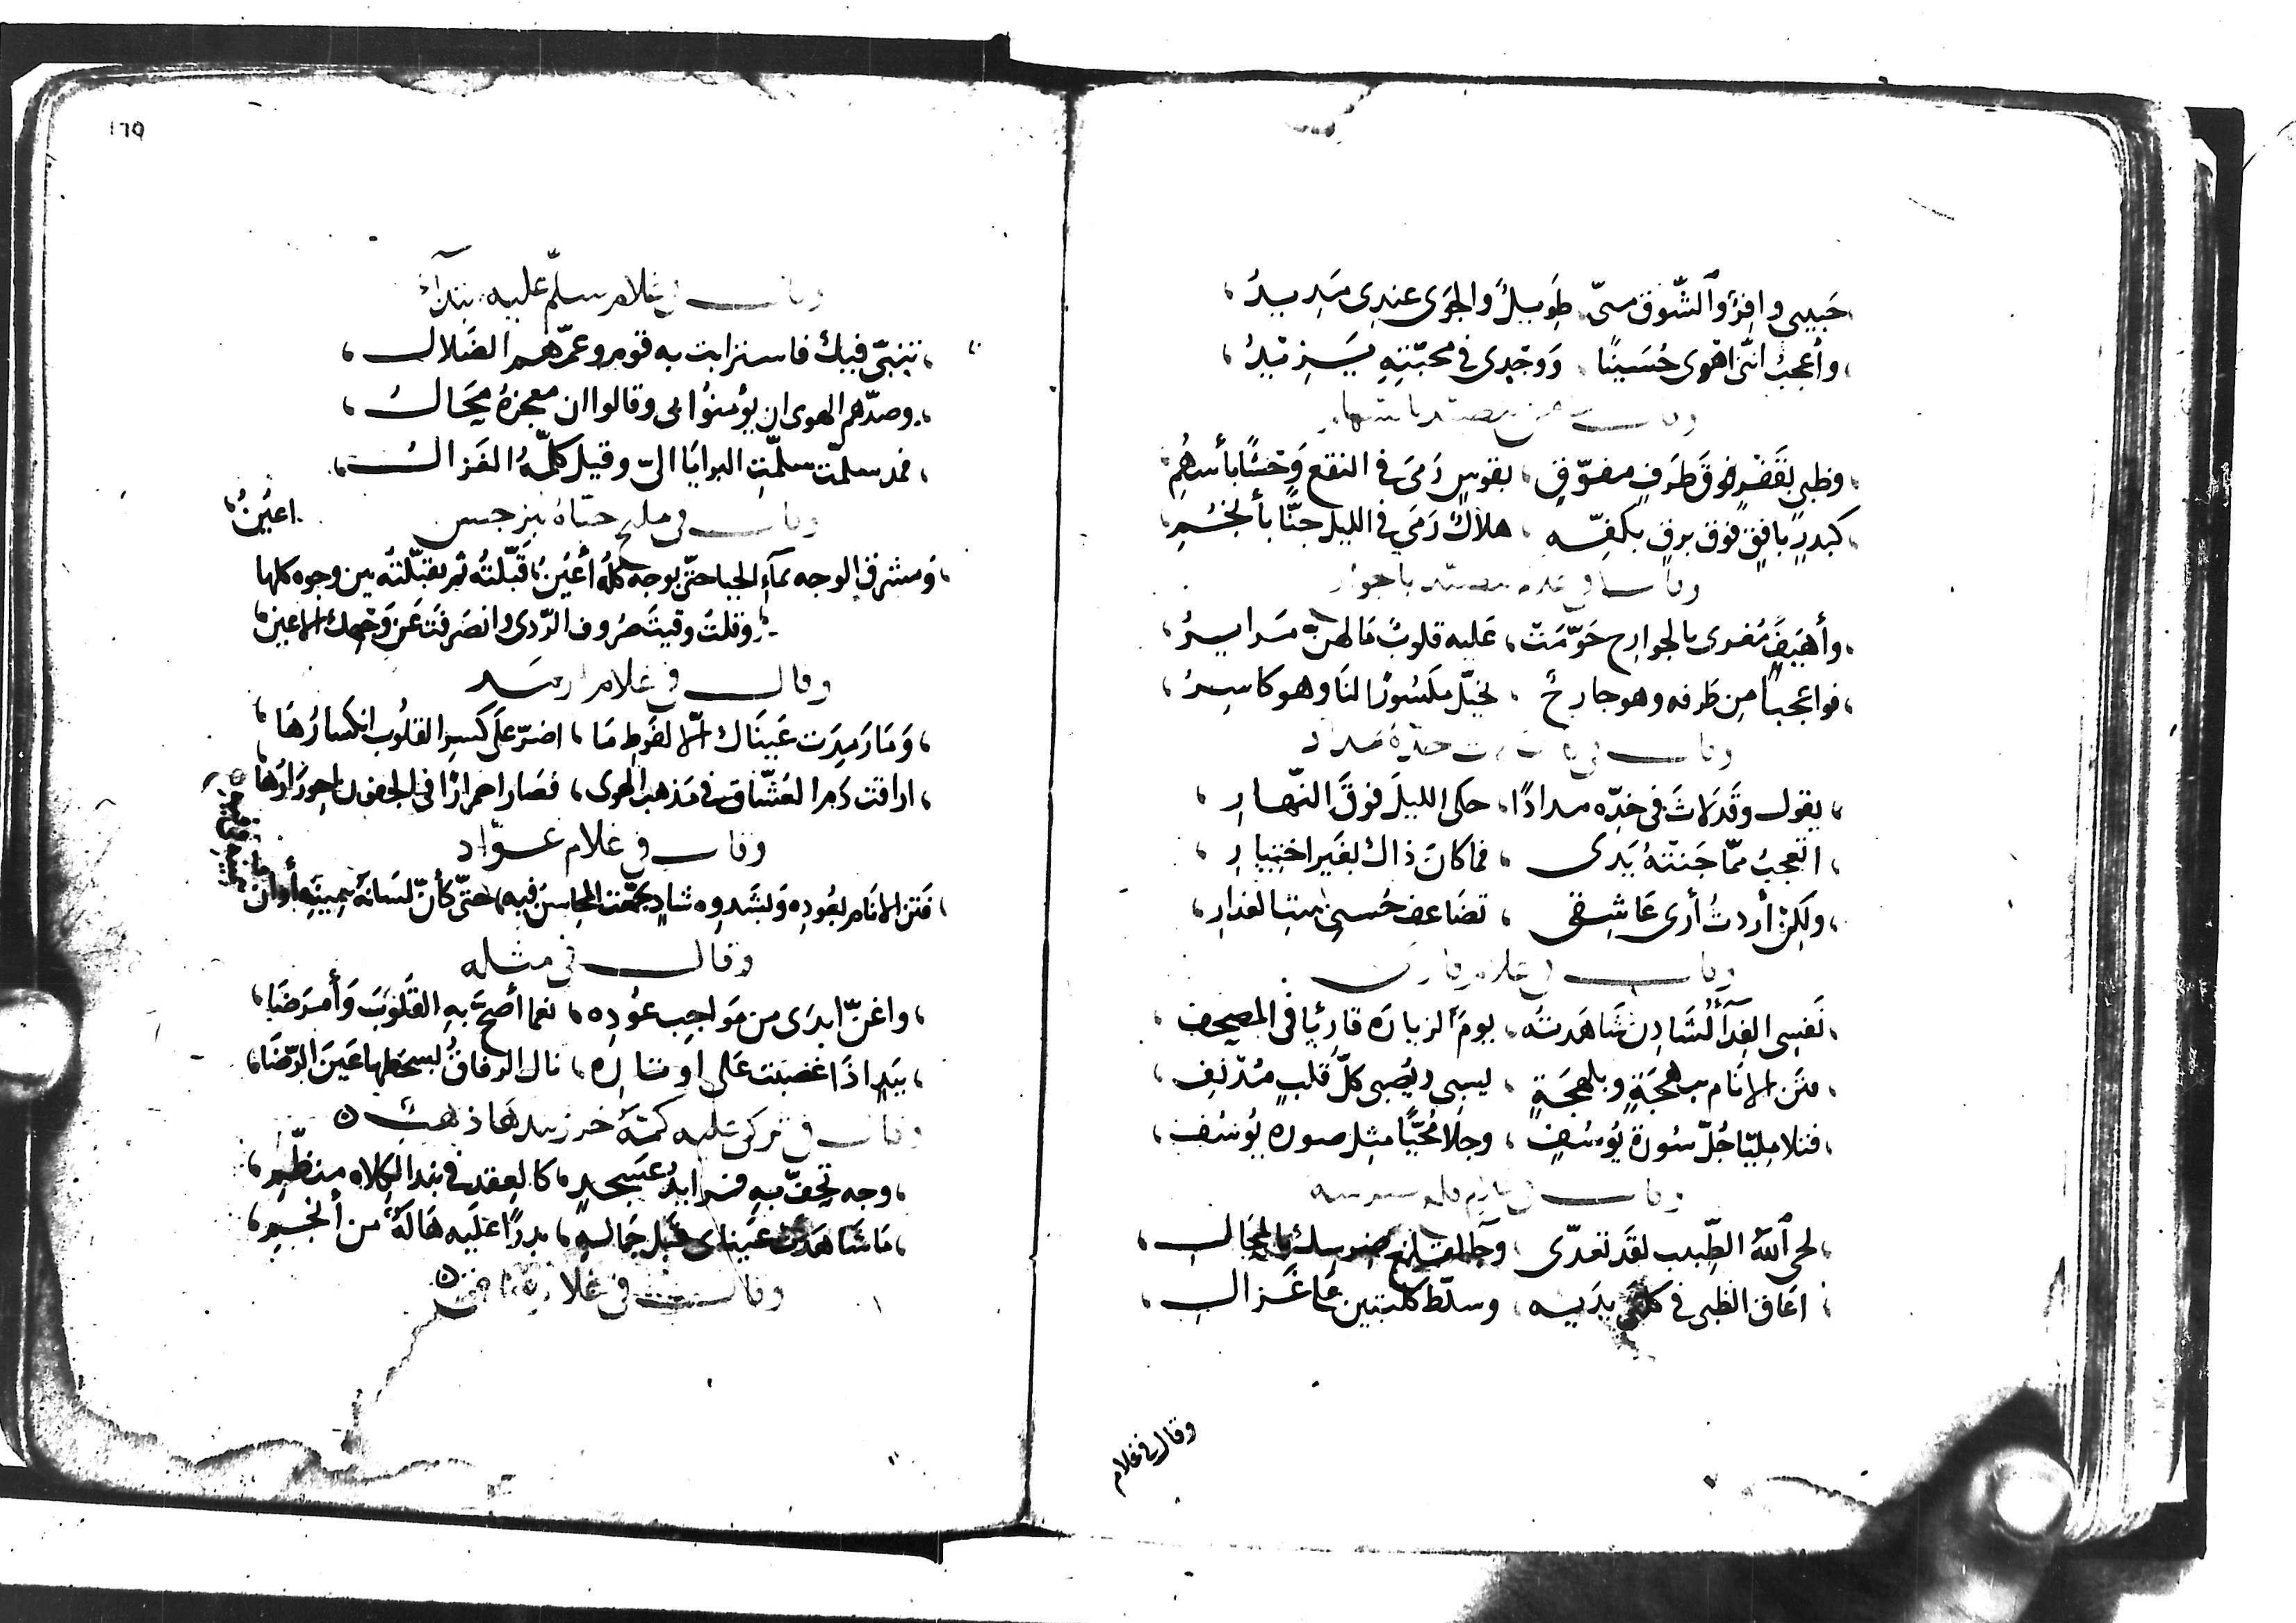 حَبيبى وافِرٌ وَالشَّوق منىّ طَويلٌ والجوَى عندى مَديدُ
وأعجبُ انّنى اهوى حُسَينًا وَوَجْدى فى محبّتِهِ يَزيدُ
وظبىٍ بقَفْرٍ فوق طَرفٍ مفوّقٍ بقوسٍ رَمَىَ فى النقع وَحْشًا بأسهُمِ
كبدرٍ بافقٍ فوق برقٍ بكفّه هلالٌ رَمَى فى الليل جنًّا بأنجُمِ
وأهيَفٍ مُغرى بالجوارح حَوّمَت عَليه قلوبٌ مَا لهنّ مَراير
فواعجباً مِن طَرفه وهو جارحٌ يخيّل مكسُورًا لنَا وهو كاسِرُ
يقول وقَد لاثَ فى خدّه مدادًا حكى الليلَ فوقَ النّهارِ
اتعجبُ ممّا جَنتْهُ يَدى فما كانَ ذاك بغَير اختيارِ
ولكِنْ أردتُ أرى عَاشِقى تضَاعف حُسنى العذارِ
وقال فى غلام قارئ
نَفسِى الفِدَآءُ لشَادِن شَاهَدتُه يومَ الزيارَه قارِئِا فى المصحف
فتَن الانَام ببهجَةٍ وبلهجَةٍ يسبى ويُصبى كلّ قلبٍ مُدْنَفِ
فتلا مليّا جُلّ سُورة يُوسُفٍ وجلا مُحَيًّا مِثل صوره يُوسُف
لحى اللّٰه الطّبيب لقَد تعدّى وجآ لقلع ضرسِك بالمُحَالِ
اعَاق الظبى فى كلتَى يدَيه وسلّط كلبتَين عَلى غَزالِ
وقال فى غلام
١٦٩
وقال فى غلام سلّم عليه
تنبّى فيك فاسترابت به قوم وعمّهم الضلال
وصدّهم الهوى ان يؤمنُوا بى وقالوا ان معجزهُ مُحَالُ
فمذ سلمّت سلمّتِ البرايَا الىّ وقيل كلّمهُ الغَزالُ
وقال فى مليح حيّاهُ بنرجس
اعيُنُ
وَمشرق الوجه بمآءِ الحيا حتّى بوجه كلّه أعيُنُ قَبّلتُه ثم تقبّلتُه بين وجوه كلها
وقلتُ وقيتَ صُروف الرّدى وانصَرفتَ عَن وَجهِك الاعينُ
وقال فى غلام ارمَد
وَمَا رَمِدَت عَينَاك الّا لفَرطِ مَا اضرّ عَلَى كسرِ القلُوب انكسارُهَا
اراقت دَم العُشّاق فى مَذهب الهوى فصَار احمرارًا فى الجفون احورَارُهَا
وقال فى غلام عوّاد
فَتَن الانَام بعُودِه وَبشَدوِه شادٍ تجمّعت المحاسنُ فيهِ حتّى كأنّ لسَانَهُ بيمينِهِ أو أن
وقال فى مثله
واغنّ ابدَى من مَواجِب عوُدِه نغما أصحّ بهِ القلوُبَ وَأمرَضَا
بيَدٍ اذَا غضبَت عَلى اوتاره نال الرفاق بسخطِها عَينَ الرّضَا
وقال فى تركى عليه كمّه
وجه تحفّ بهِ فرايدُ عسجدٍ كالعقد فى بند الكلاه منظّمِ
مَا شَاهَدَت عَيناى قَبل جَماله بدرًا علَيه هَالةٌ من أنجُمِ
وقالت فى غلام